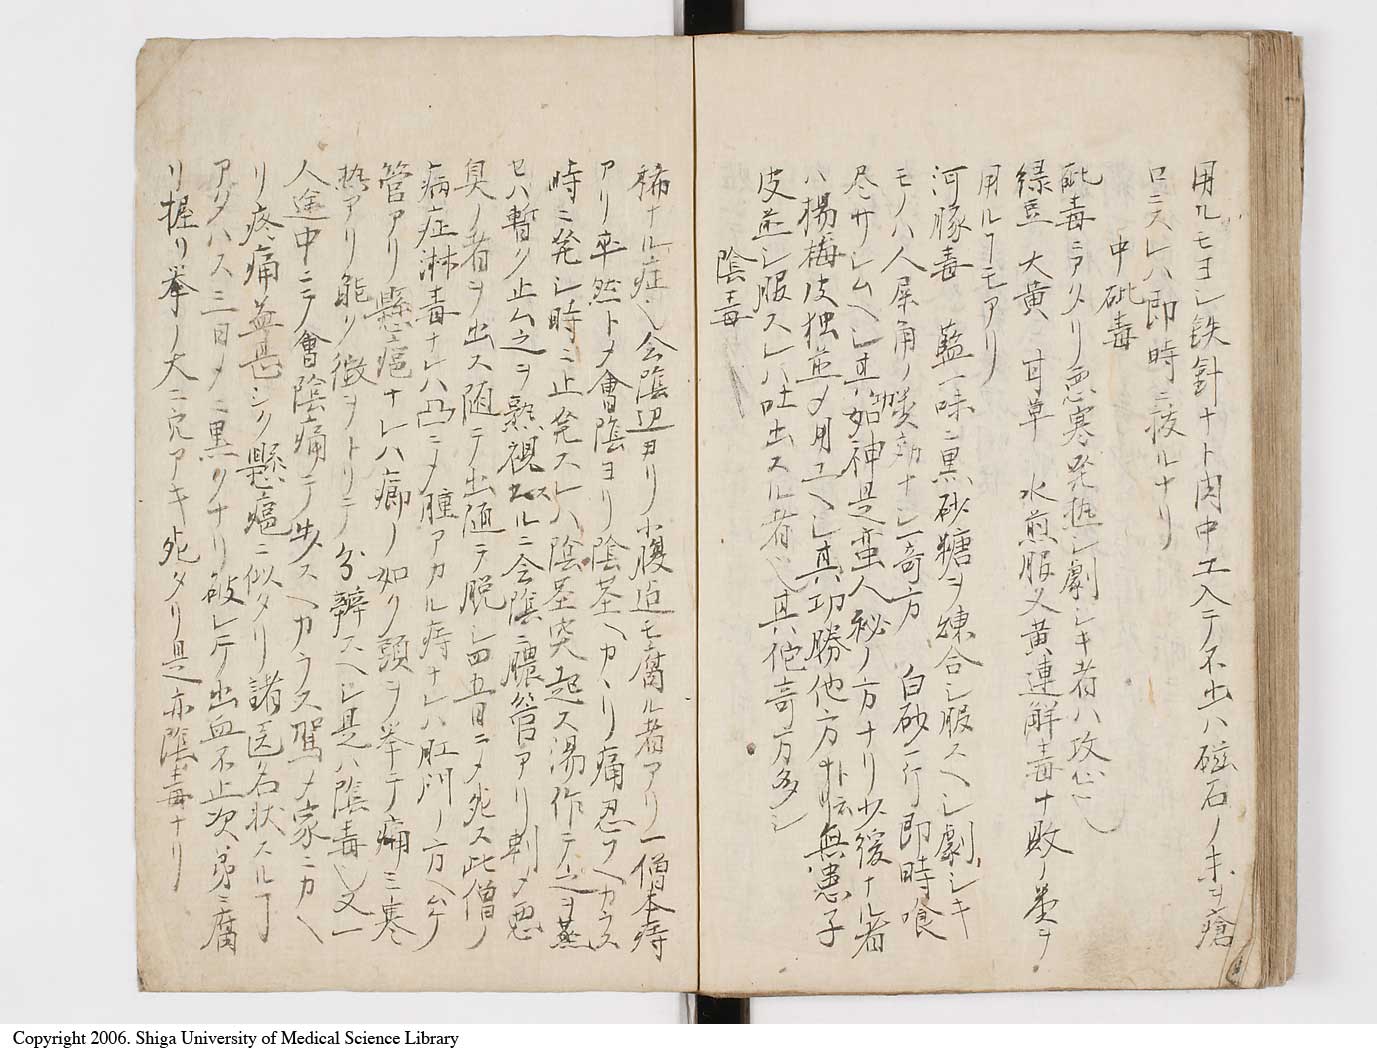 用ルモヨシ鉄針ナト肉中エ入テ不出ハ磁石ノ末ヲ瘡
口ニスレハ即時ニ抜ルナリ
中砒毒
砒毒ニアタリ悪寒発熱シ劇シキ者ハ攻心也
緑豆 大黄 甘草 水煎服又黄連解毒
用ルヿモアリ
河豚毒 藍一味ニ黒砂糖ヲ煉合シ服スヘシ劇シキ
モノハ人屎角ノ効ナシ一奇方 白砂一行即時喰
尽サシムヘシ其如神是蛮人秘ノ方ナリ少緩ナル者
ハ楊梅皮独煎〆用ユヘシ其功勝他方ナト云無患子
皮煎シ服スレハ吐出スル者也其他奇方多シ
陰毒
稀ナル症也会陰辺ヨリ小腹迄モ腐ル者アリ一僧本痔
アリ卒然ト〆會陰ヨリ陰茎ヘカヽリ痛忍フヘカラス
時ニ発シ時ニ止発スレハ陰茎突起ス湯作テ之ヲ蒸
セハ暫ク止ム之ヲ熟視スルニ会陰ニ膿管アリ刺〆悪
臭ノ者ヲ出ス随テ出随テ脱シ四五日ニ〆死ス此僧ノ
病症淋毒ナレハ凸ニ〆腫アカル痔ナレハ肛門ノ方ヘムケ
管アリ懸癰ナレハ癤ノ如ク頭ヲ挙テ痛ミ寒
熱アリ能ク徴ヲトリテ分辨スヘシ是ハ陰毒也又一
人途中ニテ會陰痛テ歩スヘカラス駕〆家ニカヘ
リ疼痛益甚シク懸癰ニ似タリ諸医名状スル丁
アタハス三日〆ニ黒クナリ破レテ出血不止次第ニ腐
リ握リ拳ノ大ニ穴アキ死タリ是亦陰毒ナリ
Copyright 2006. Shiga University of Medical Science Library